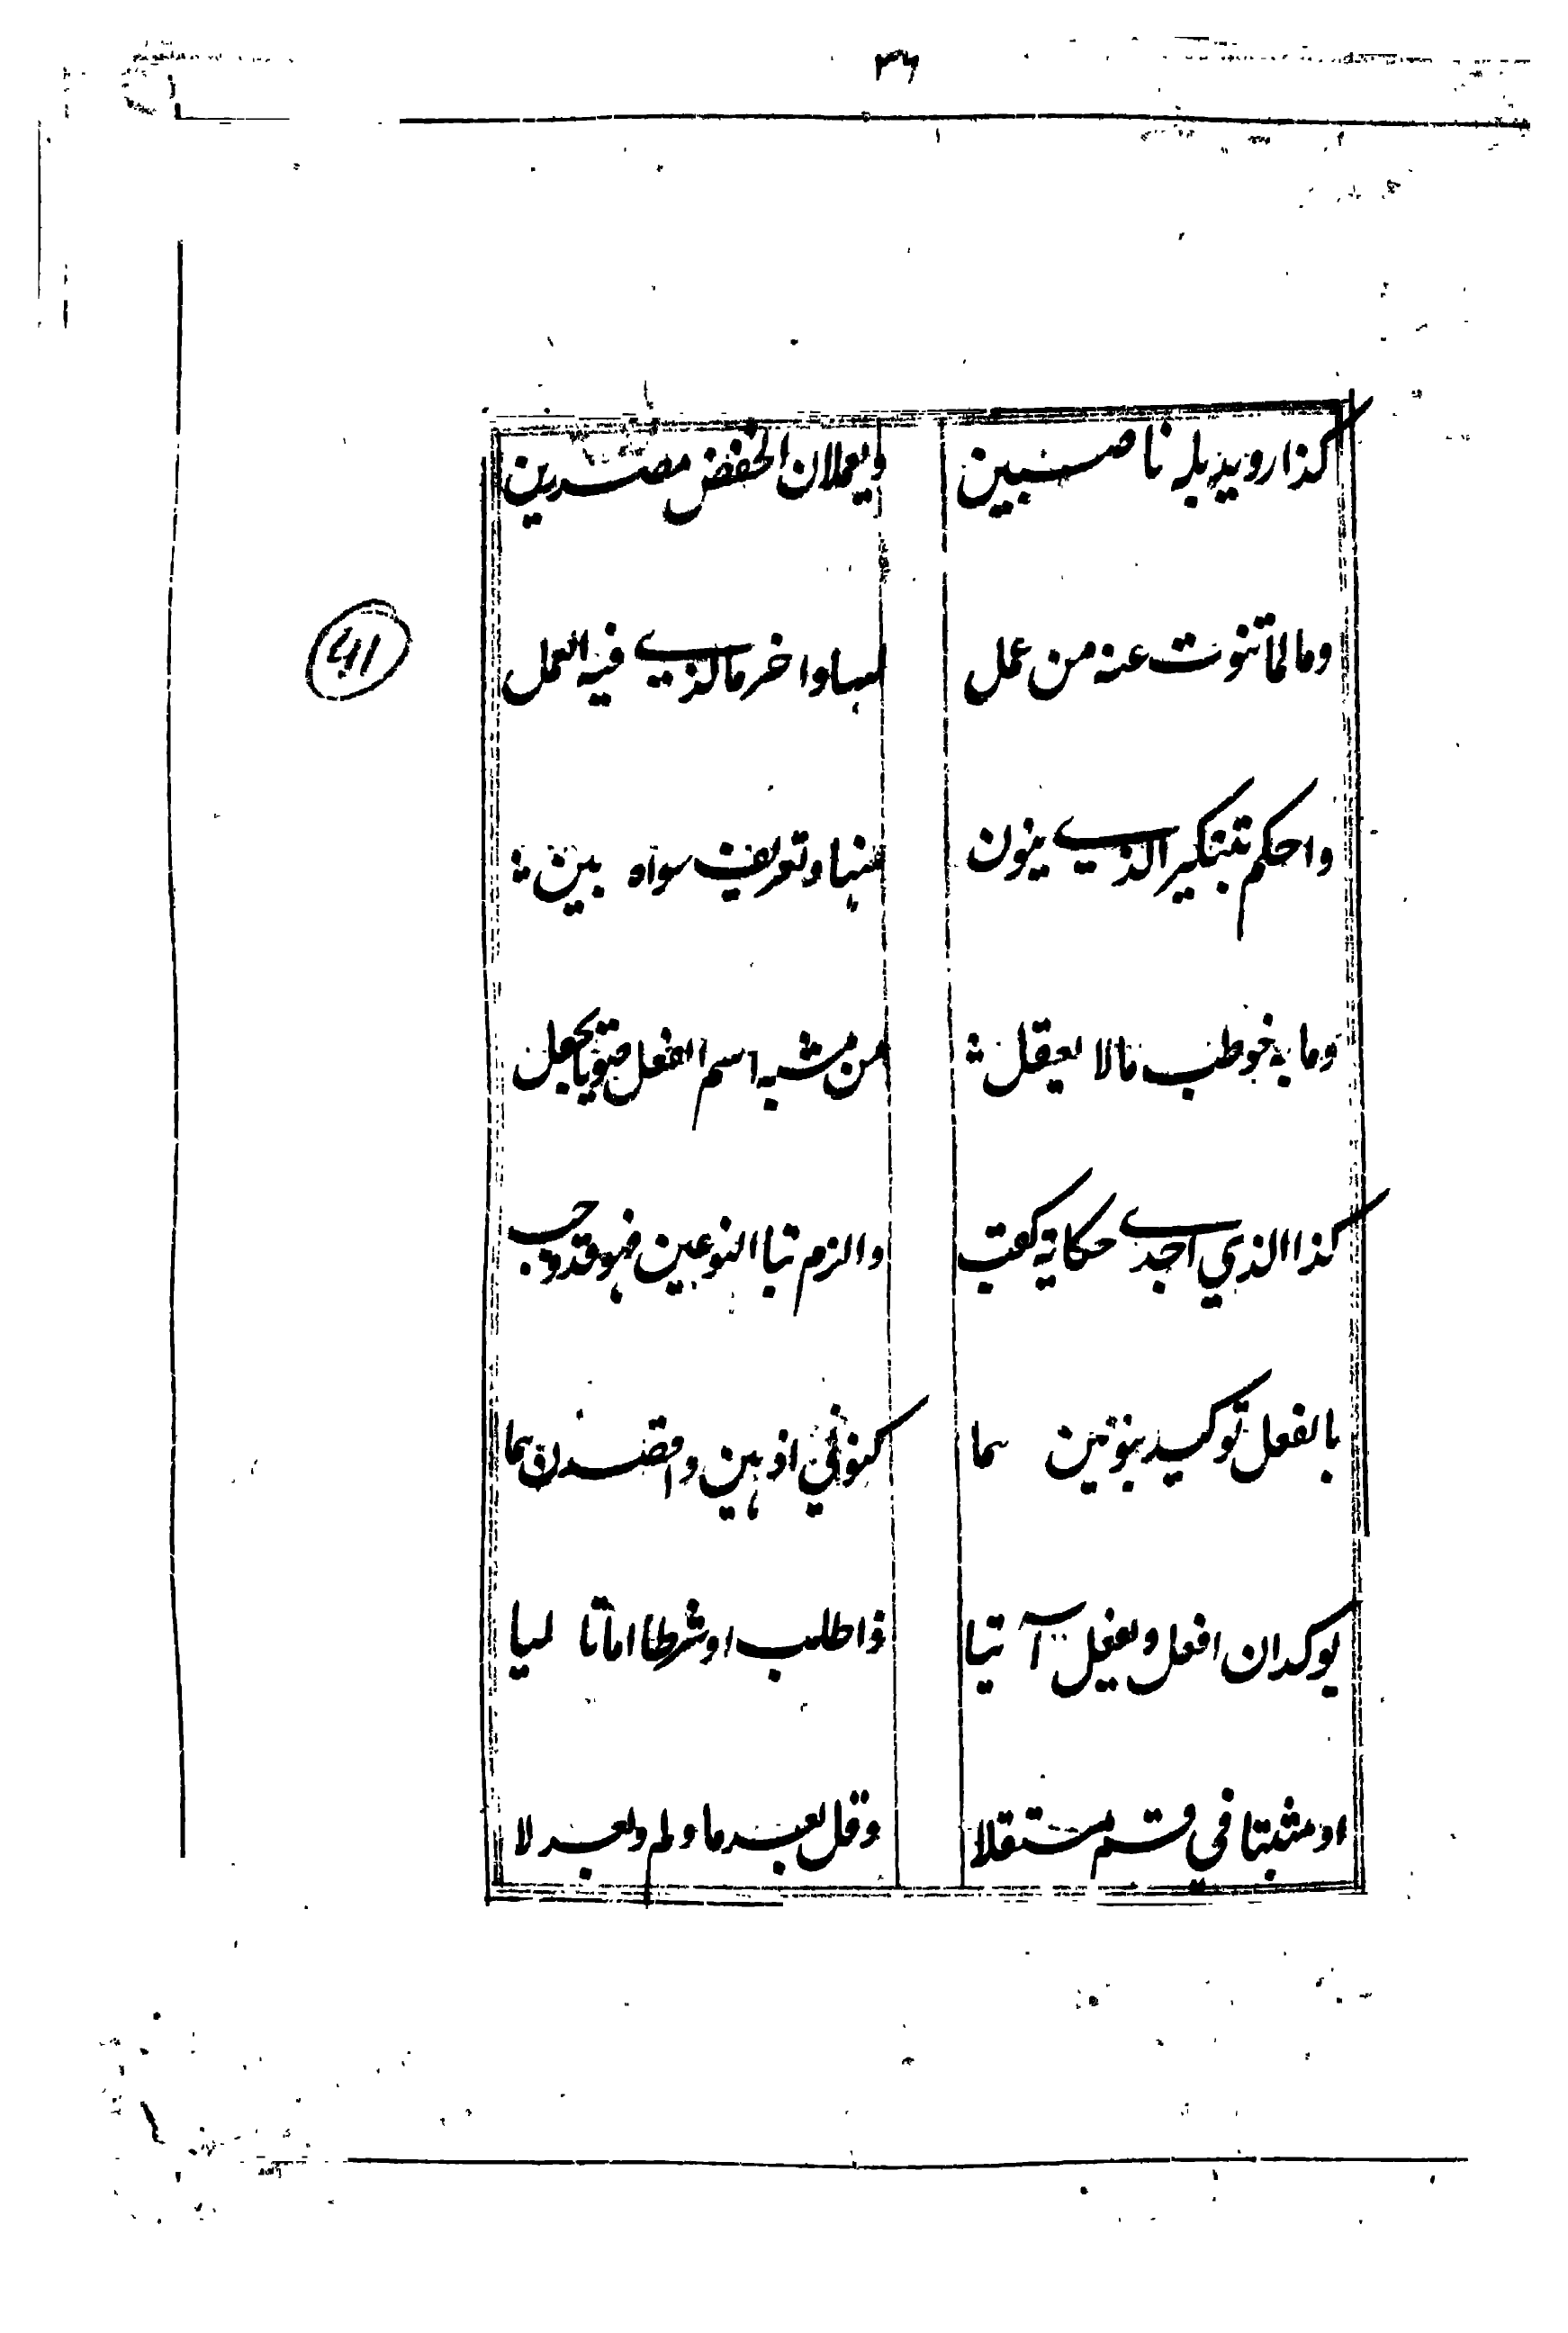 ٣٦
كذا رويد بله ناصبين ويعملان الخفض مصدرين
وما لما تنوب عنه من عمل لها واخر ما لذي فيه العمل
واحكم بتنكير الذي ينون منها وتعريف سواه بين
وما به خوطب ما لا يعقل من مشبه اسم الفعل صوتا يجعل
كذا الذي اجدى حكاية كقب والزم بنا النوعين فهو قد وجب
بالفعل توكيد بنونين هما كنوني اذهبن واقصدنهما
يوكدان افعل ويفعل آتيا ذا طلب او شرطا اما تاليا
او مثبتا في قسم مستقلا وقل بعد ما ولم وبعد لا